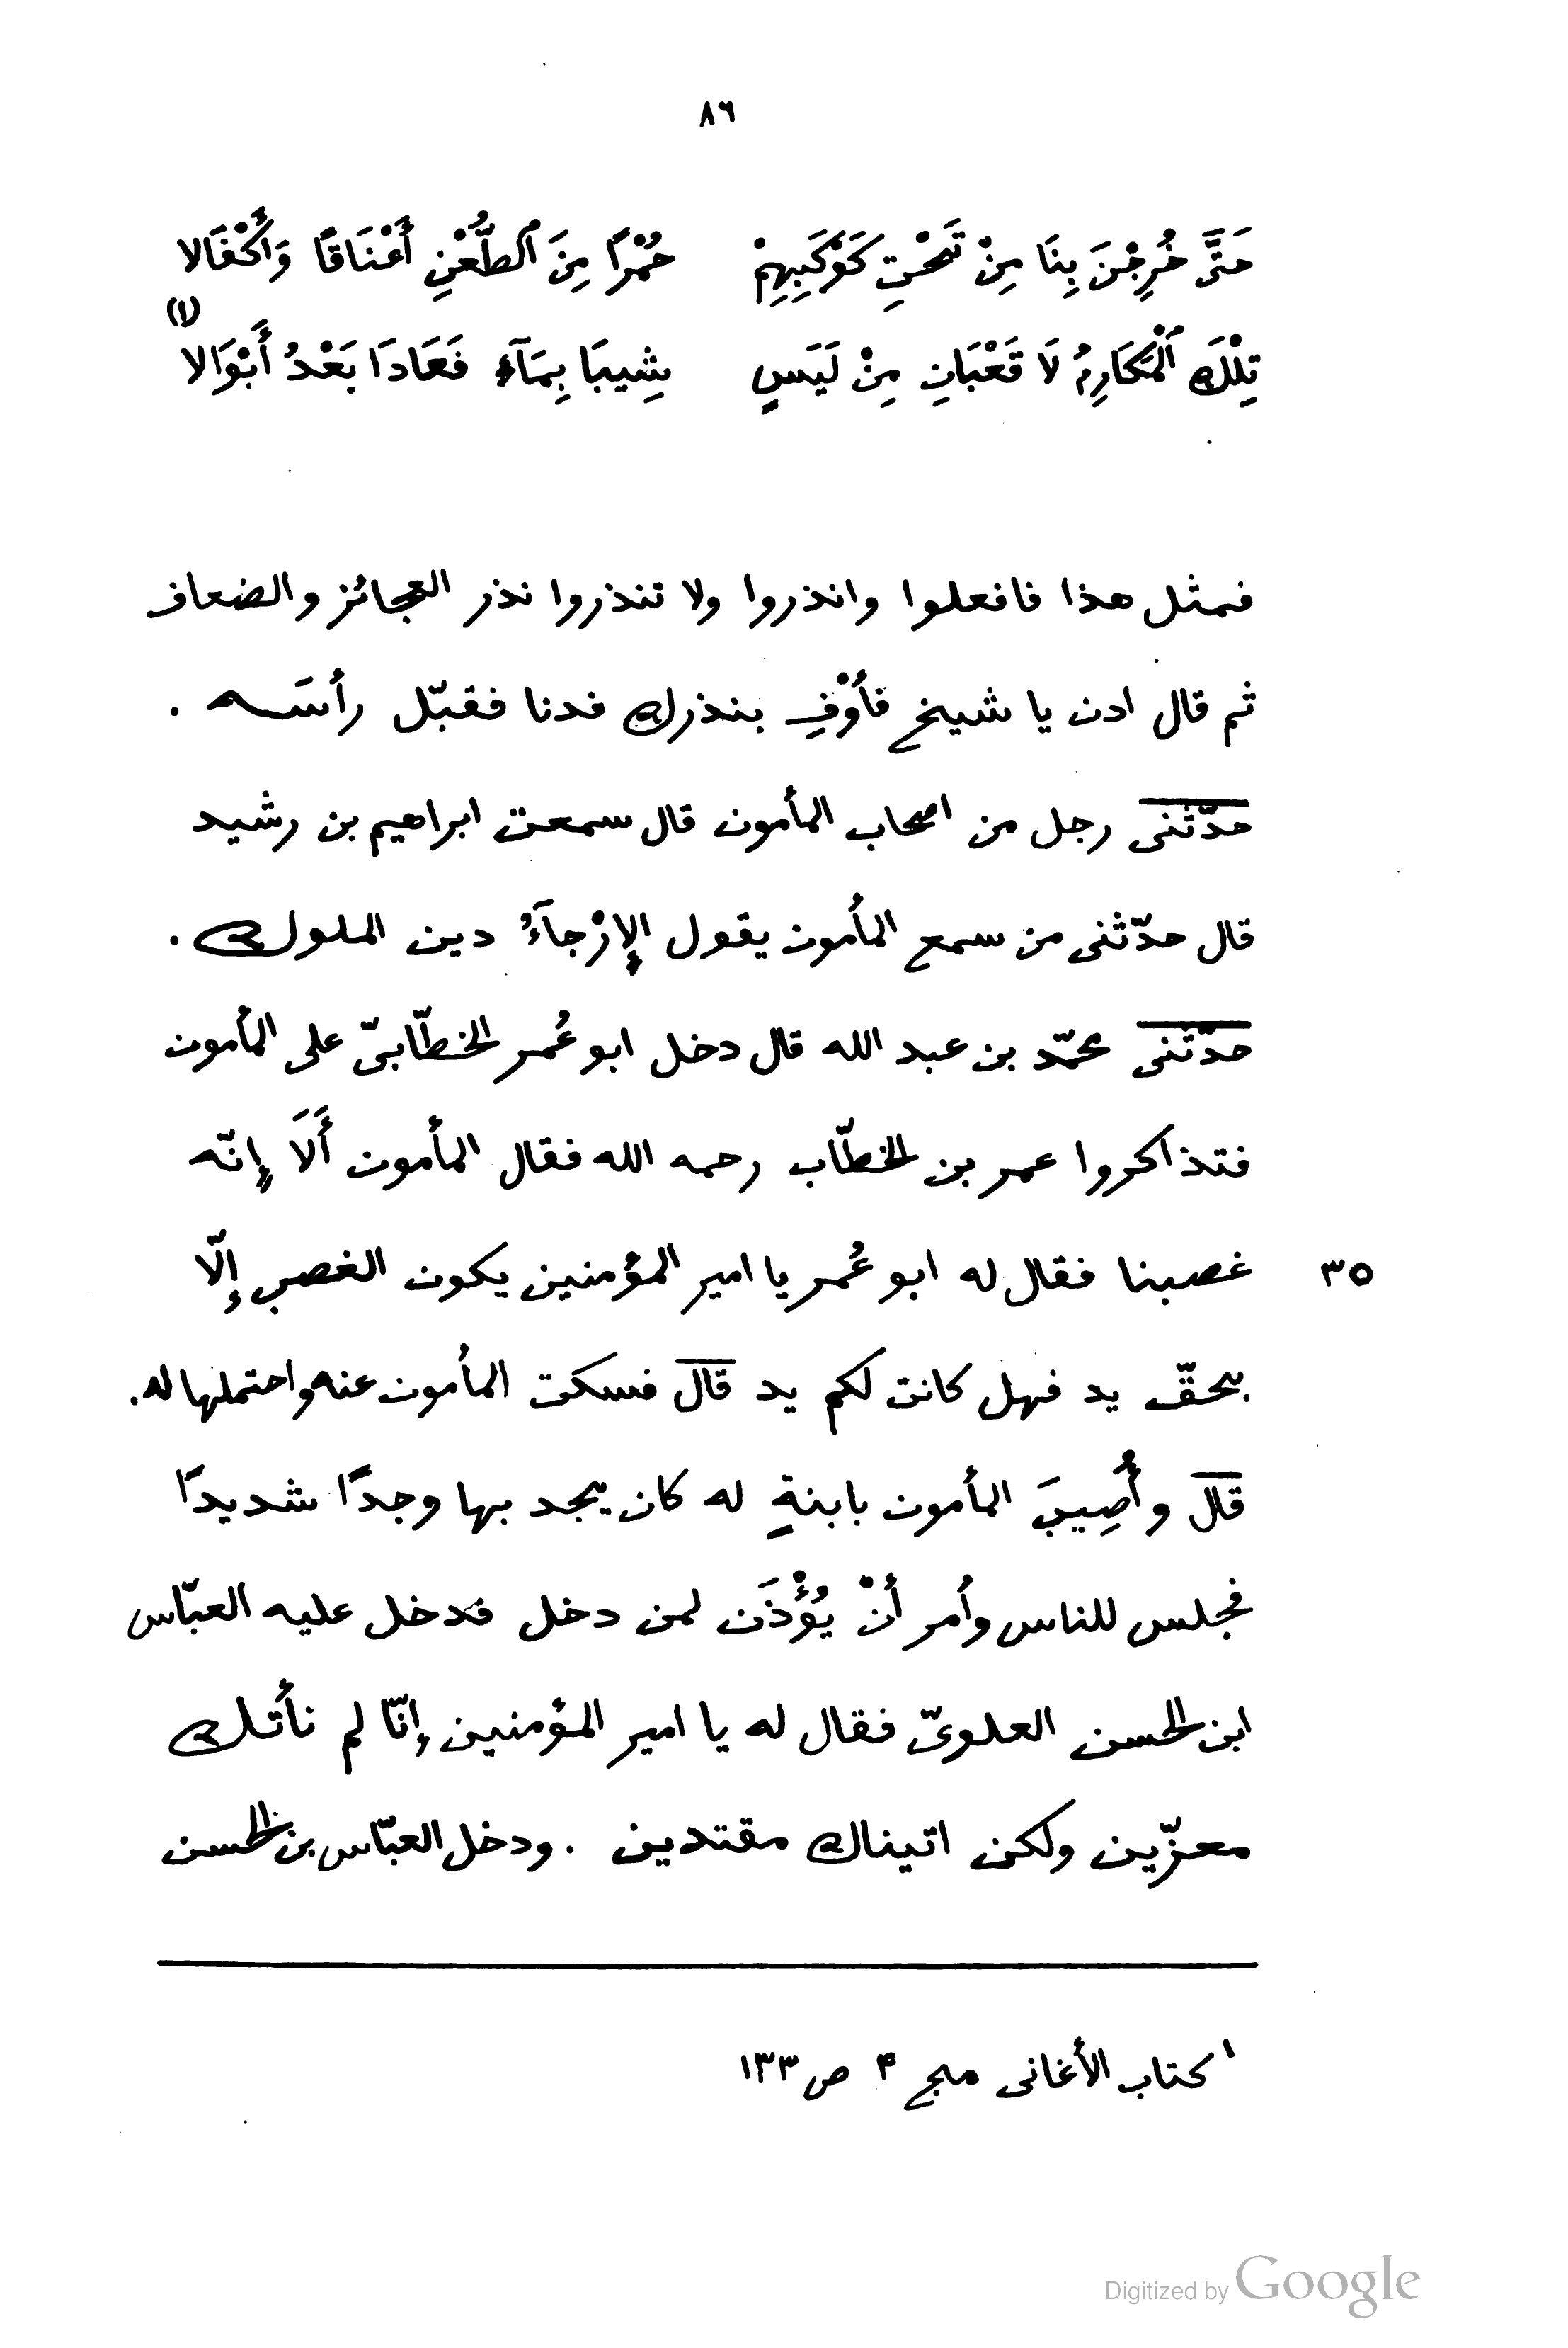 ٨٦
حَتَّى خُرِجْنَ بِنَا مِنْ تَحْتِ كَوْكَبِهِمْ حُمْرًا مِنَ ٱلطَّعْنِ أَعْنَاقًا وَأَكْفَالا
تِلْكَ ٱلْمَكَارِمُ لَا قَعْبَانِ مِنْ لَبَنٍ شِيبَا بِمَآءٍ فَعَادَا بَعْدُ أَبْوَالا (١)
فمثل هذا فافعلوا وانذروا ولا تنذروا نذر العجائز والضعاف
ثم قال ادن يا شيخ فأَوْفِ بنذرك فدنا فقبّل رأسَه .
حدّثنى رجل من اصحاب المأمون قال سمعت ابراهيم بن رشيد
قال حدّثنى من سمع المأمون يقول الإرْجآءُ دين الملوك .
حدّثنى محمّد بن عبد الله قال دخل ابو عُمر الخطّابىّ على المأمون
فتذاكروا عمر بن الخطّاب رحمه الله فقال المأمون أَلَا إنّه
غصبنا فقال له ابو عُمر يا امير المؤمنين يكون الغصب إلّا
٣٥
بحقّ يد فهل كانت لكم يد قال فسكت المأمون عنه واحتملها له.
قال وأُصِيبَ المأمون بابنةٍ له كان يجد بها وجدًا شديدًا
فجلس للناس وأمر أنْ يُؤْذَن لمن دخل فدخل عليه العبّاس
ابن الحسن العلوىّ فقال له يا امير المؤمنين إنّا لم نأتك
معزّين ولكن اتيناك مقتدين . ودخل العبّاس بن الحسن
١ كتاب الأغانى مج ۴ ص ١٣٣
Digitized by Google